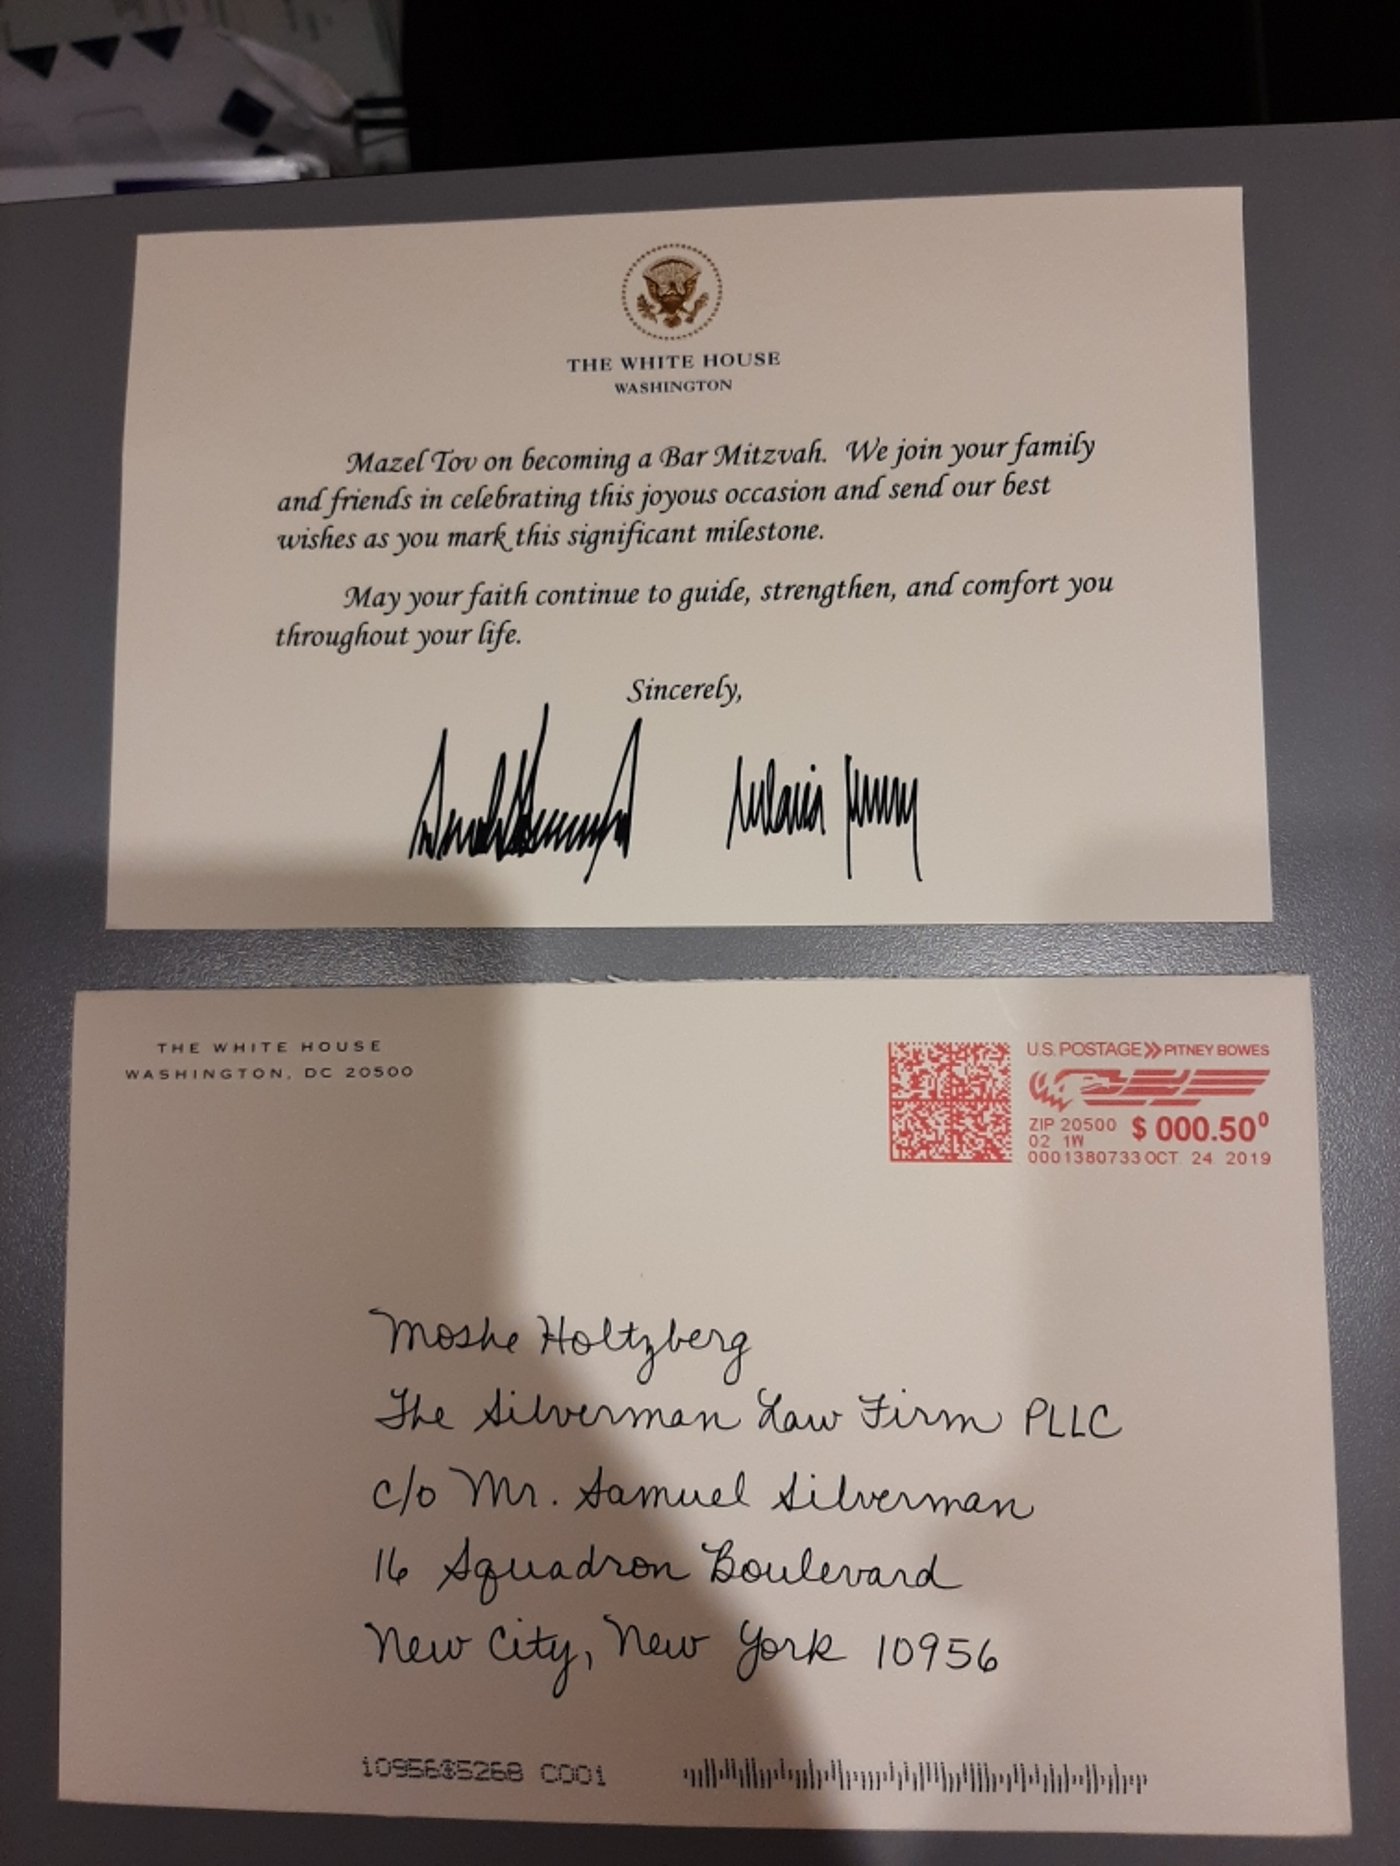 THE WHITE HOUSE
WASHINGTON
Mazel Tov on becoming a Bar Mitzvah. We join your family
and friends in celebrating this joyous occasion and send our best
wishes as you mark this significant milestone.
May your faith continue to guide, strengthen, and comfort you
throughout your life.
Sincerely,
THE WHITE HOUSE
WASHINGTON, DC 20500
U.S. POSTAGE PITNEY BOWES
ZIP 20500 $ 000.50⁰
02 1W
0001380733 OCT. 24 2019
Moshe Holtzberg
The Silverman Law Firm PLLC
c/o Mr. Samuel Silverman
16 Squadron Boulevard
New City, New York 10956
10956$5268 C001